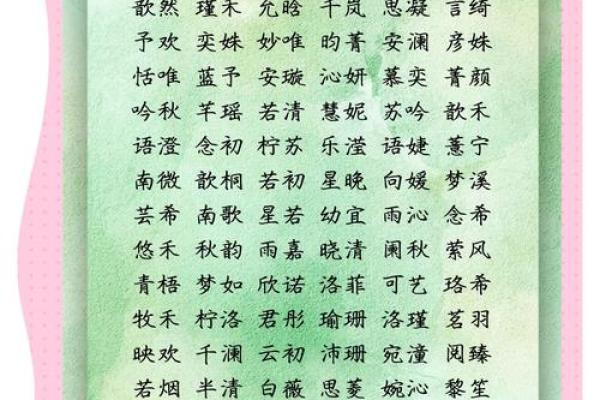 歆然 瑾禾 允晗 千岚 思凝 言绮
予欢 奕姝 妙唯 昀菁 安澜 彦姝
恬唯 蓝予 安璇 沁妍 慕奕 菁颜
吟秋 芊瑶 若清 慧妮 苏吟 歆禾
语澄 念初 柠苏 乐滢 语婕 薏宁
南微 歆桐 若初 星晚 向媛 梦溪
芸希 南歌 星若 幼宜 雨沁 念希
悠禾 秋韵 雨嘉 晓清 阑秋 萦风
青梧 梦如 欣诺 洛菲 可艺 珞希
牧禾 柠洛 君彤 瑜珊 洛瑾 茗羽
映欢 千澜 云初 沛珊 宛潼 阅臻
若烟 半清 白薇 思菱 婉沁 黎笙